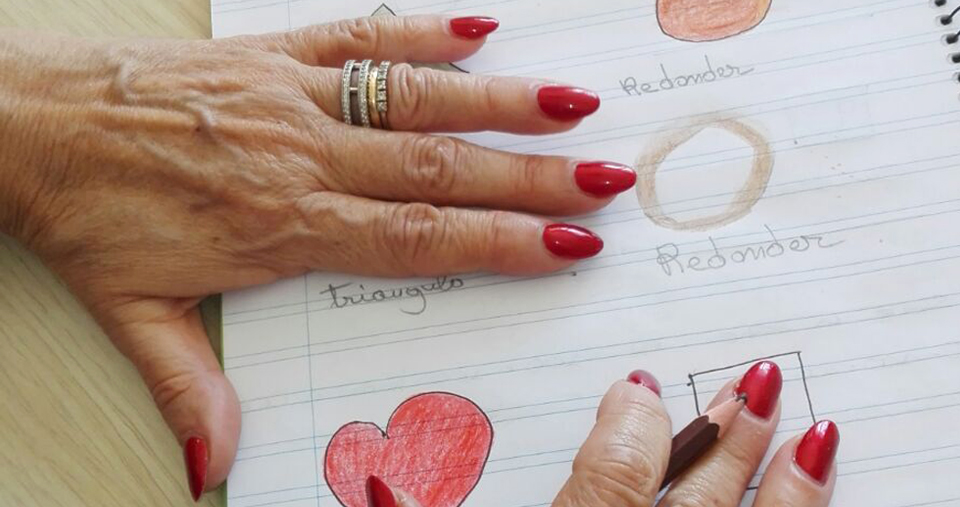 Redonder
Redonder
triangulo